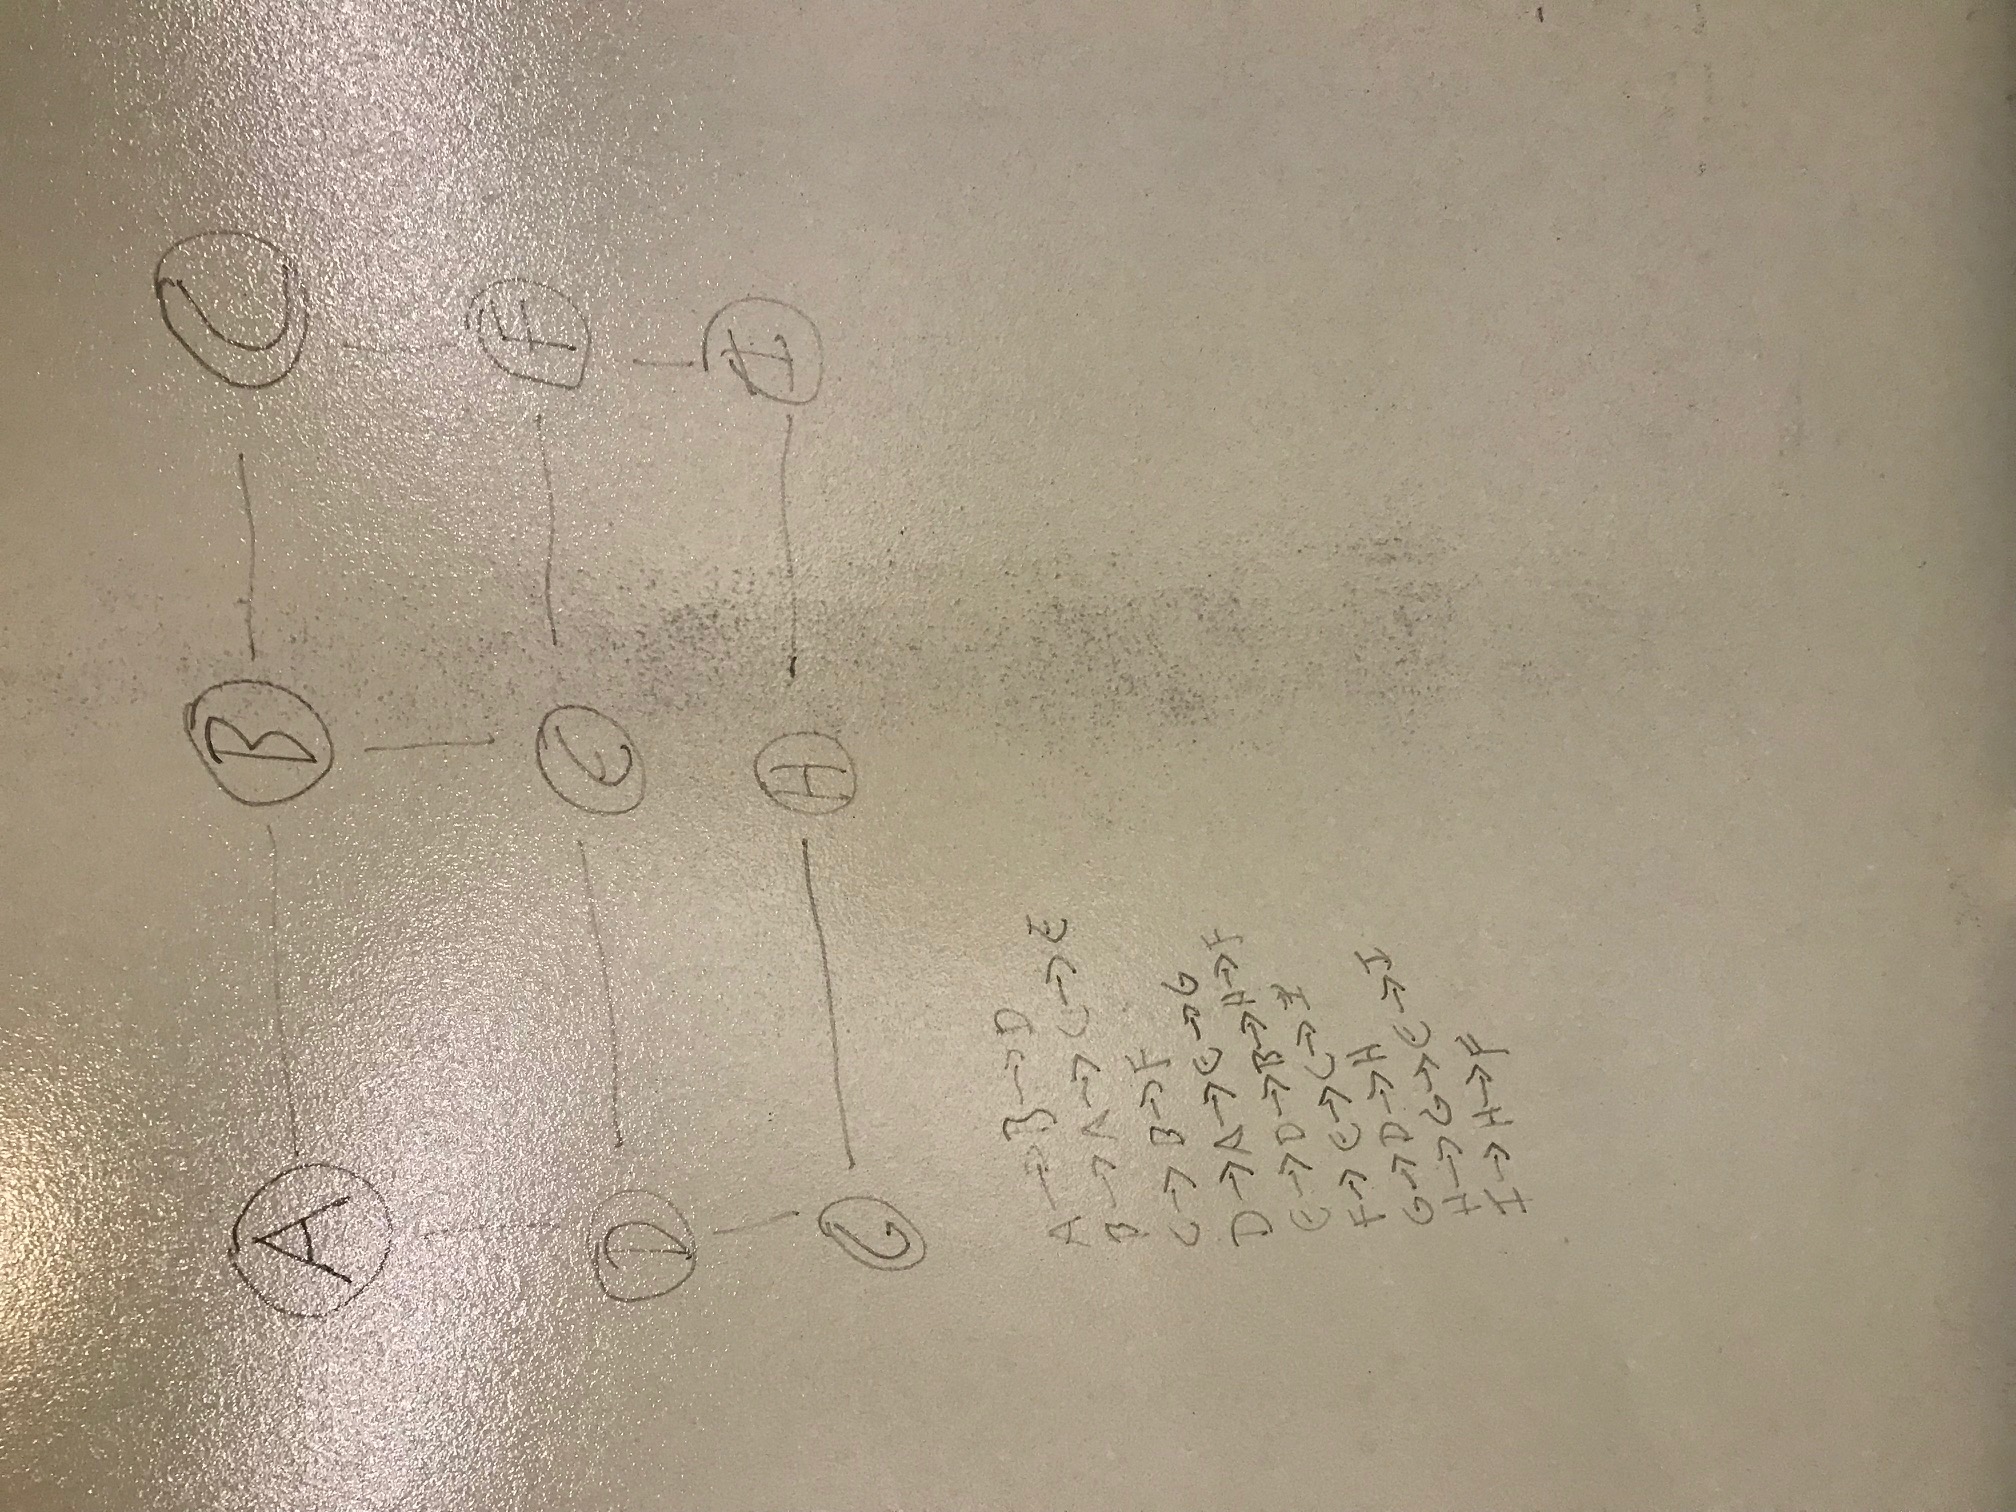 A B C
D E F
G H I
A→B→D
B→A→C→E
C→B→F
D→A→E→G
E→D→B→H→F
F→E→C→I
G→D→H
H→G→E→I
I→H→F